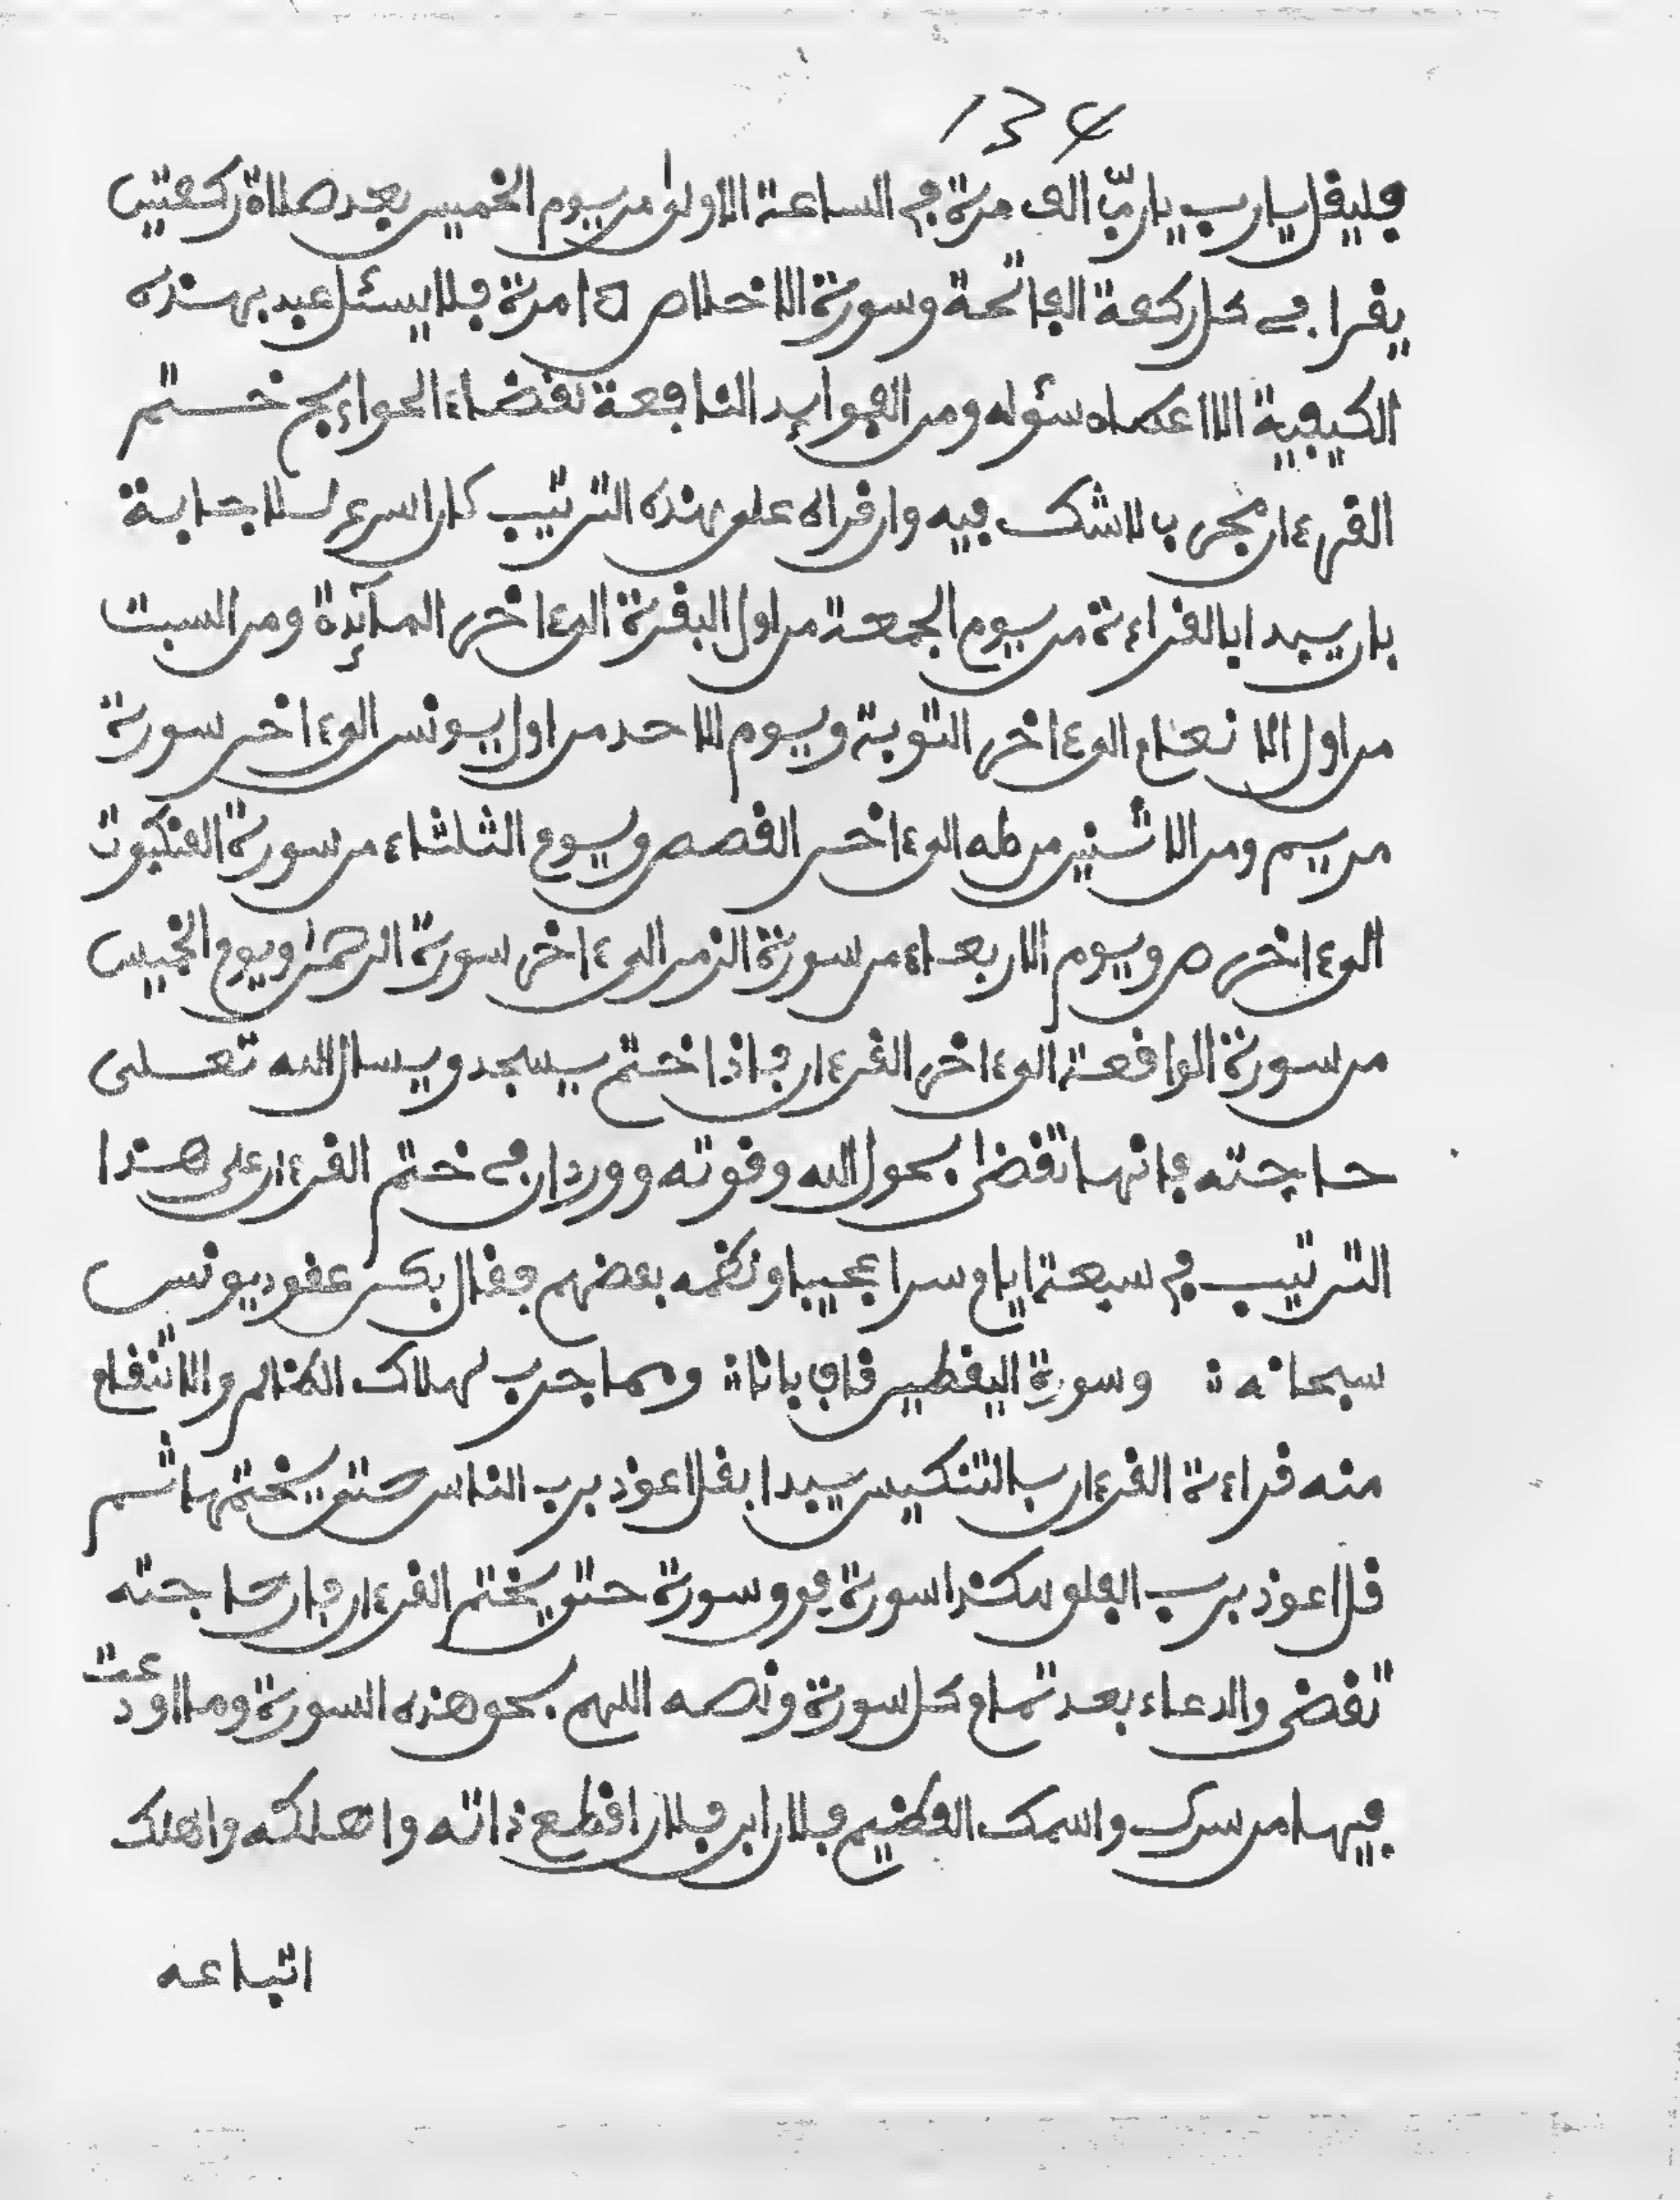 134
فليقل يا رب يا ربّ الف مرة في الساعة الاولى من يوم الخميس بعد صلاة ركعتين
يقرا في كل ركعة الفاتحة وسورة الاخلاص مرة فلا يسئل عبد بهذه
الكيفية الا اعطاه سؤله ومن الفوايد النافعة لقضاء الحواءيج ختم
القرءان مجرب لا شك فيه وان قراه على هذه الترتيب كان اسرع للاجابة
بان يبدا بالقراءة من يوم الجمعة من اول البقرة الى ءاخر المآيدة ومن السبت
من اول الانعام الى ءاخر التوبة ويوم الاحد من اول يونس الى ءاخر سورة
مريم ومن الاثنين من طه الى ءاخر القصص ويوم الثلثاء من سورة العنكبوت
الى ءاخر ص ويوم الاربعاء من سورة الزمر الى ءاخر سورة الرحمن ويوم الخميس
من سورة الواقعة الى ءاخر القرءان فاذا ختم يسجد ويسال الله تعلى
حاجته فانها تقضى بحول الله وقوته وورد ان في ختم القرءان على هذا
الترتيب في سبعة ايام سرا عجيبا ونظمه بعضهم فقال بكر عقود يونس
سبحانه وسورة اليقطين قاف بانا ومما جرب لهلاك الظالم والانتقام
منه قراءة القرءان بالتنكيس يبدا بقل اعوذ برب الناس حتى يختمها ثم
قل اعوذ برب الفلق هكذا سورة فوق سورة حتى يختم القرءان فان حاجته
تقضى والدعاء بعد تمام كل سورة ونصه اللهم بحق هذه السورة وما اودعت
فيها من سرك واسمك العظيم فلان ابن فلان اقطع ذاته واهلكه واهلك
اتباعه